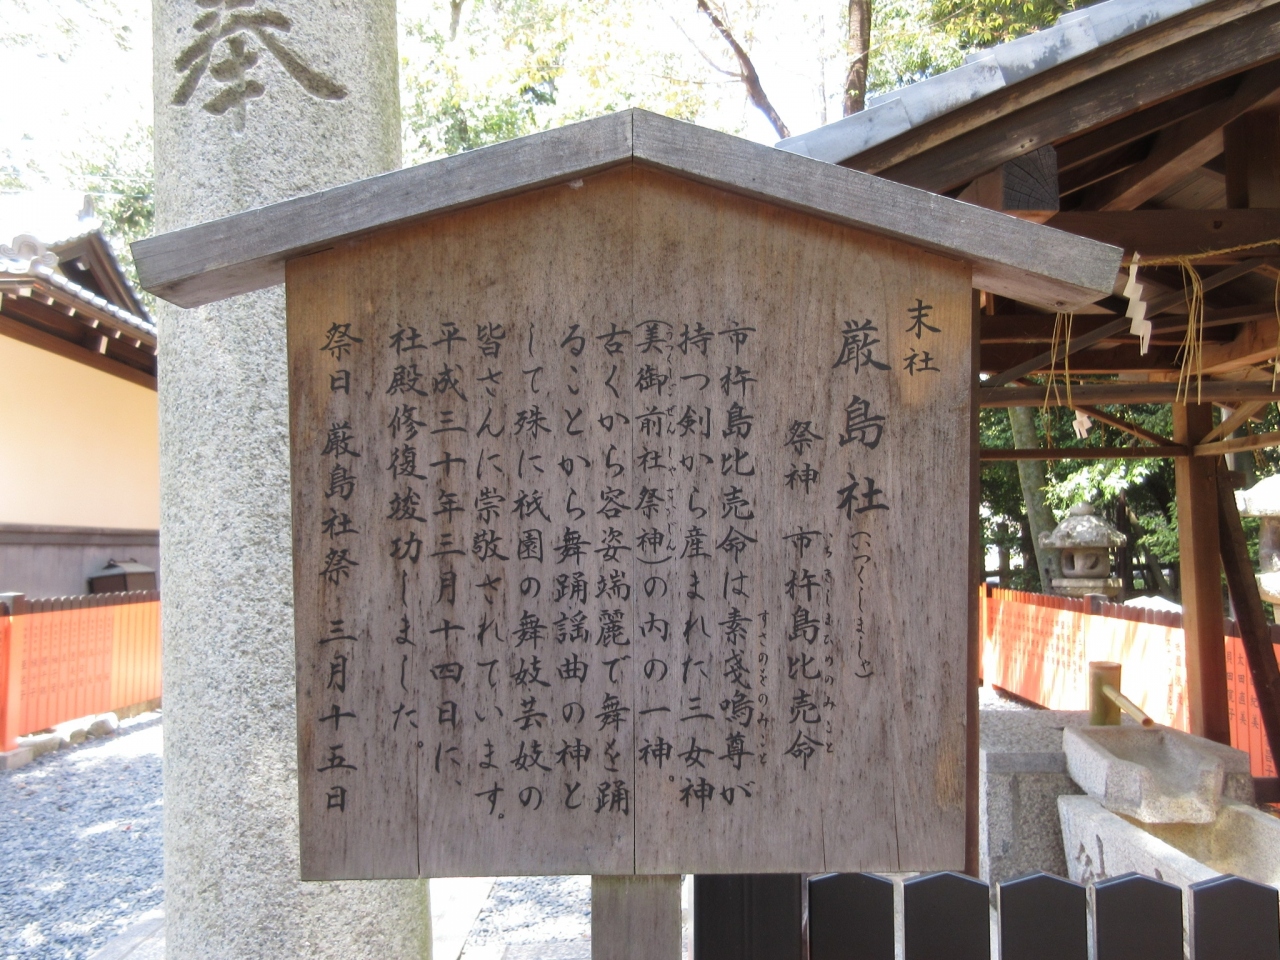 末社
厳島社(いつくしましゃ)
祭神 市杵島比売命
いちきしまひめのみこと
市杵島比売命は素戔嗚尊が
すさのをのみこと
持つ剣から産まれた三女神
(美御前社祭神)の内の一神。
うつくしごぜんしゃさいじん
古くから容姿端麗で舞を踊
ることから舞踊謡曲の神と
して殊に祇園の舞妓芸妓の
皆さんに崇敬されています。
平成三十年三月十四日に、
社殿修復竣功しました。
祭日 厳島社祭 三月十五日
奉